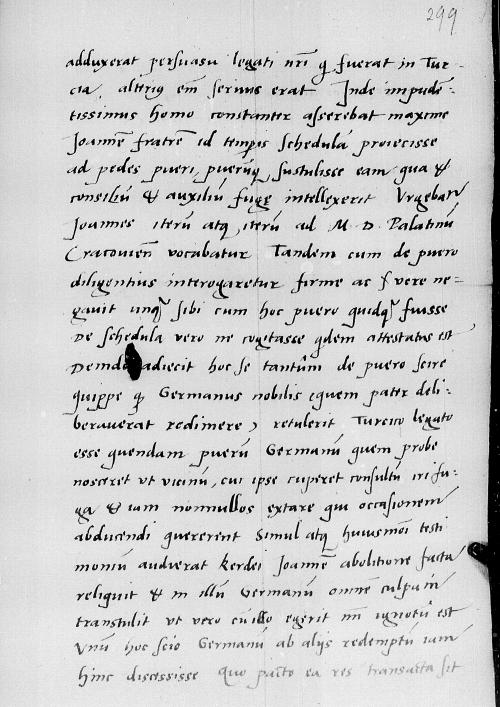 299
adduxerat persuasu legati nr̃i q̃ fuerat in Tur-
cia, alteriq em̃ seruus erat Inde impudẽ-
tissimus homo constanter asserebat maxime
Joannẽ fratrẽ id tempis schedulã proiecisse
ad pedes pueri, puerũq, sustulisse eam qua &
consiliũ & auxiliũ fugę intellexerit Vrgebatr̃
Joannes iterũ atq, iterũ ad M. D. Palatinũ
Cracouieñ vocabatur Tandem cum de puero
diligentius interogaretur firme ac s vere ne-
gauit unq̃ sibi cum hoc puero quidq̃ fuisse
De schedula vero ne cogitasse qdem attestatus est
Deinde adiecit hoc se tantũm de puero scire
quippe q̃ Germanus nobilis equem pater deli-
berauerat redimere, retulerit Turcico legato
esse quendam puerũ Germanũ quem probe
nosceret vt vicinũ, cui ipse cuperet consultũ iri fu-
ga & iam nonnullos extare qui occasionem
abducendi quererent Simul atq, huiusmõi testi
moniũ audierat Kerdei Joannẽ abolitione facta
reliquit & in illũ Germanũ omnẽ culpam
transtulit vt vero cũ illo egerit m̃ ignotũ est
Vnũ hoc scio Germanũ ab alijs redemptũ iam
hinc discessisse Quo pacto ea res transacta sit